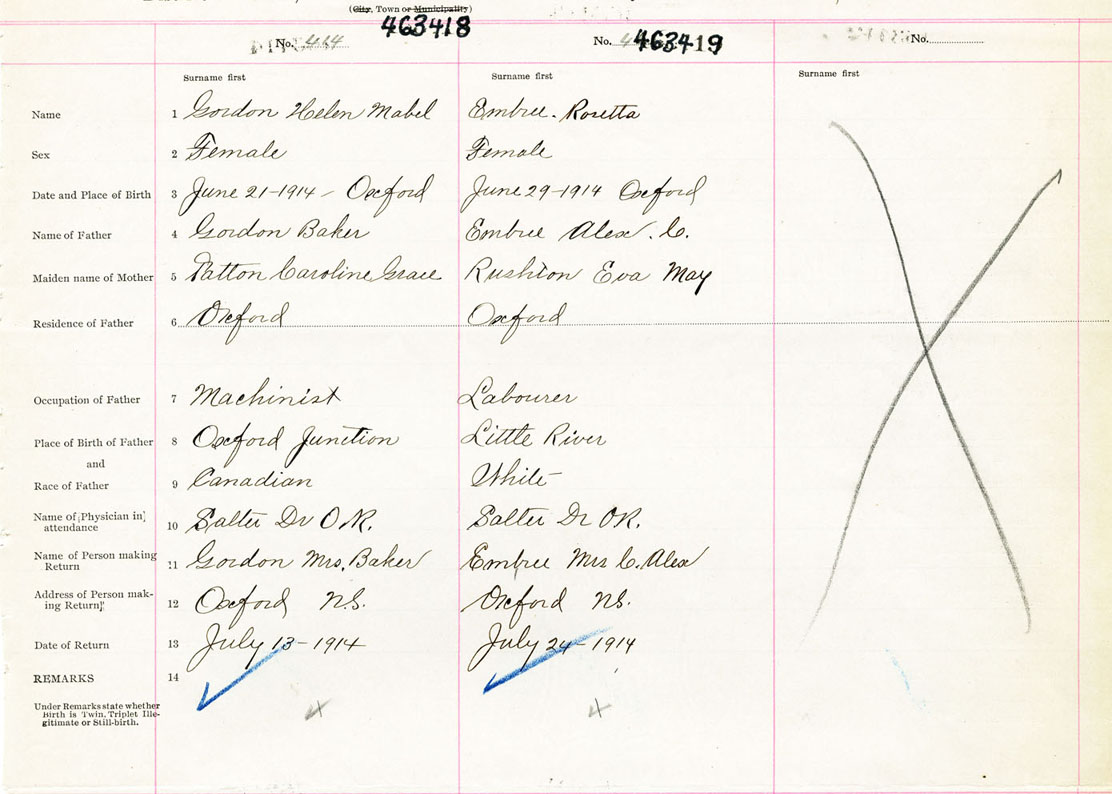 (City, Town or Municipality)
463418
No. 414
No. 463419
No.
Surname first
Surname first
Surname first
Name 1 Gordon Helen Mabel Embree. Rosetta
Sex 2 Female Female
Date and Place of Birth 3 June 21-1914 - Oxford June 29-1914 Oxford
Name of Father 4 Gordon Baker Embree Alex. C.
Maiden name of Mother 5 Patton Caroline Grace Rushton Eva May
Residence of Father 6 Oxford Oxford
Occupation of Father 7 Machinist Labourer
Place of Birth of Father 8 Oxford Junction Little River
and
Race of Father 9 Canadian White
Name of [Physician in]
attendance 10 Salter Dr O.R. Salter Dr OR.
Name of Person making
Return 11 Gordon Mrs. Baker Embree Mrs C. Alex
Address of Person mak-
ing Return] 12 Oxford N.S. Oxford NS.
Date of Return 13 July 13-1914 July 24-1914
REMARKS 14
Under Remarks state whether
Birth is Twin, Triplet Ille-
gitimate or Still-birth.
4 4